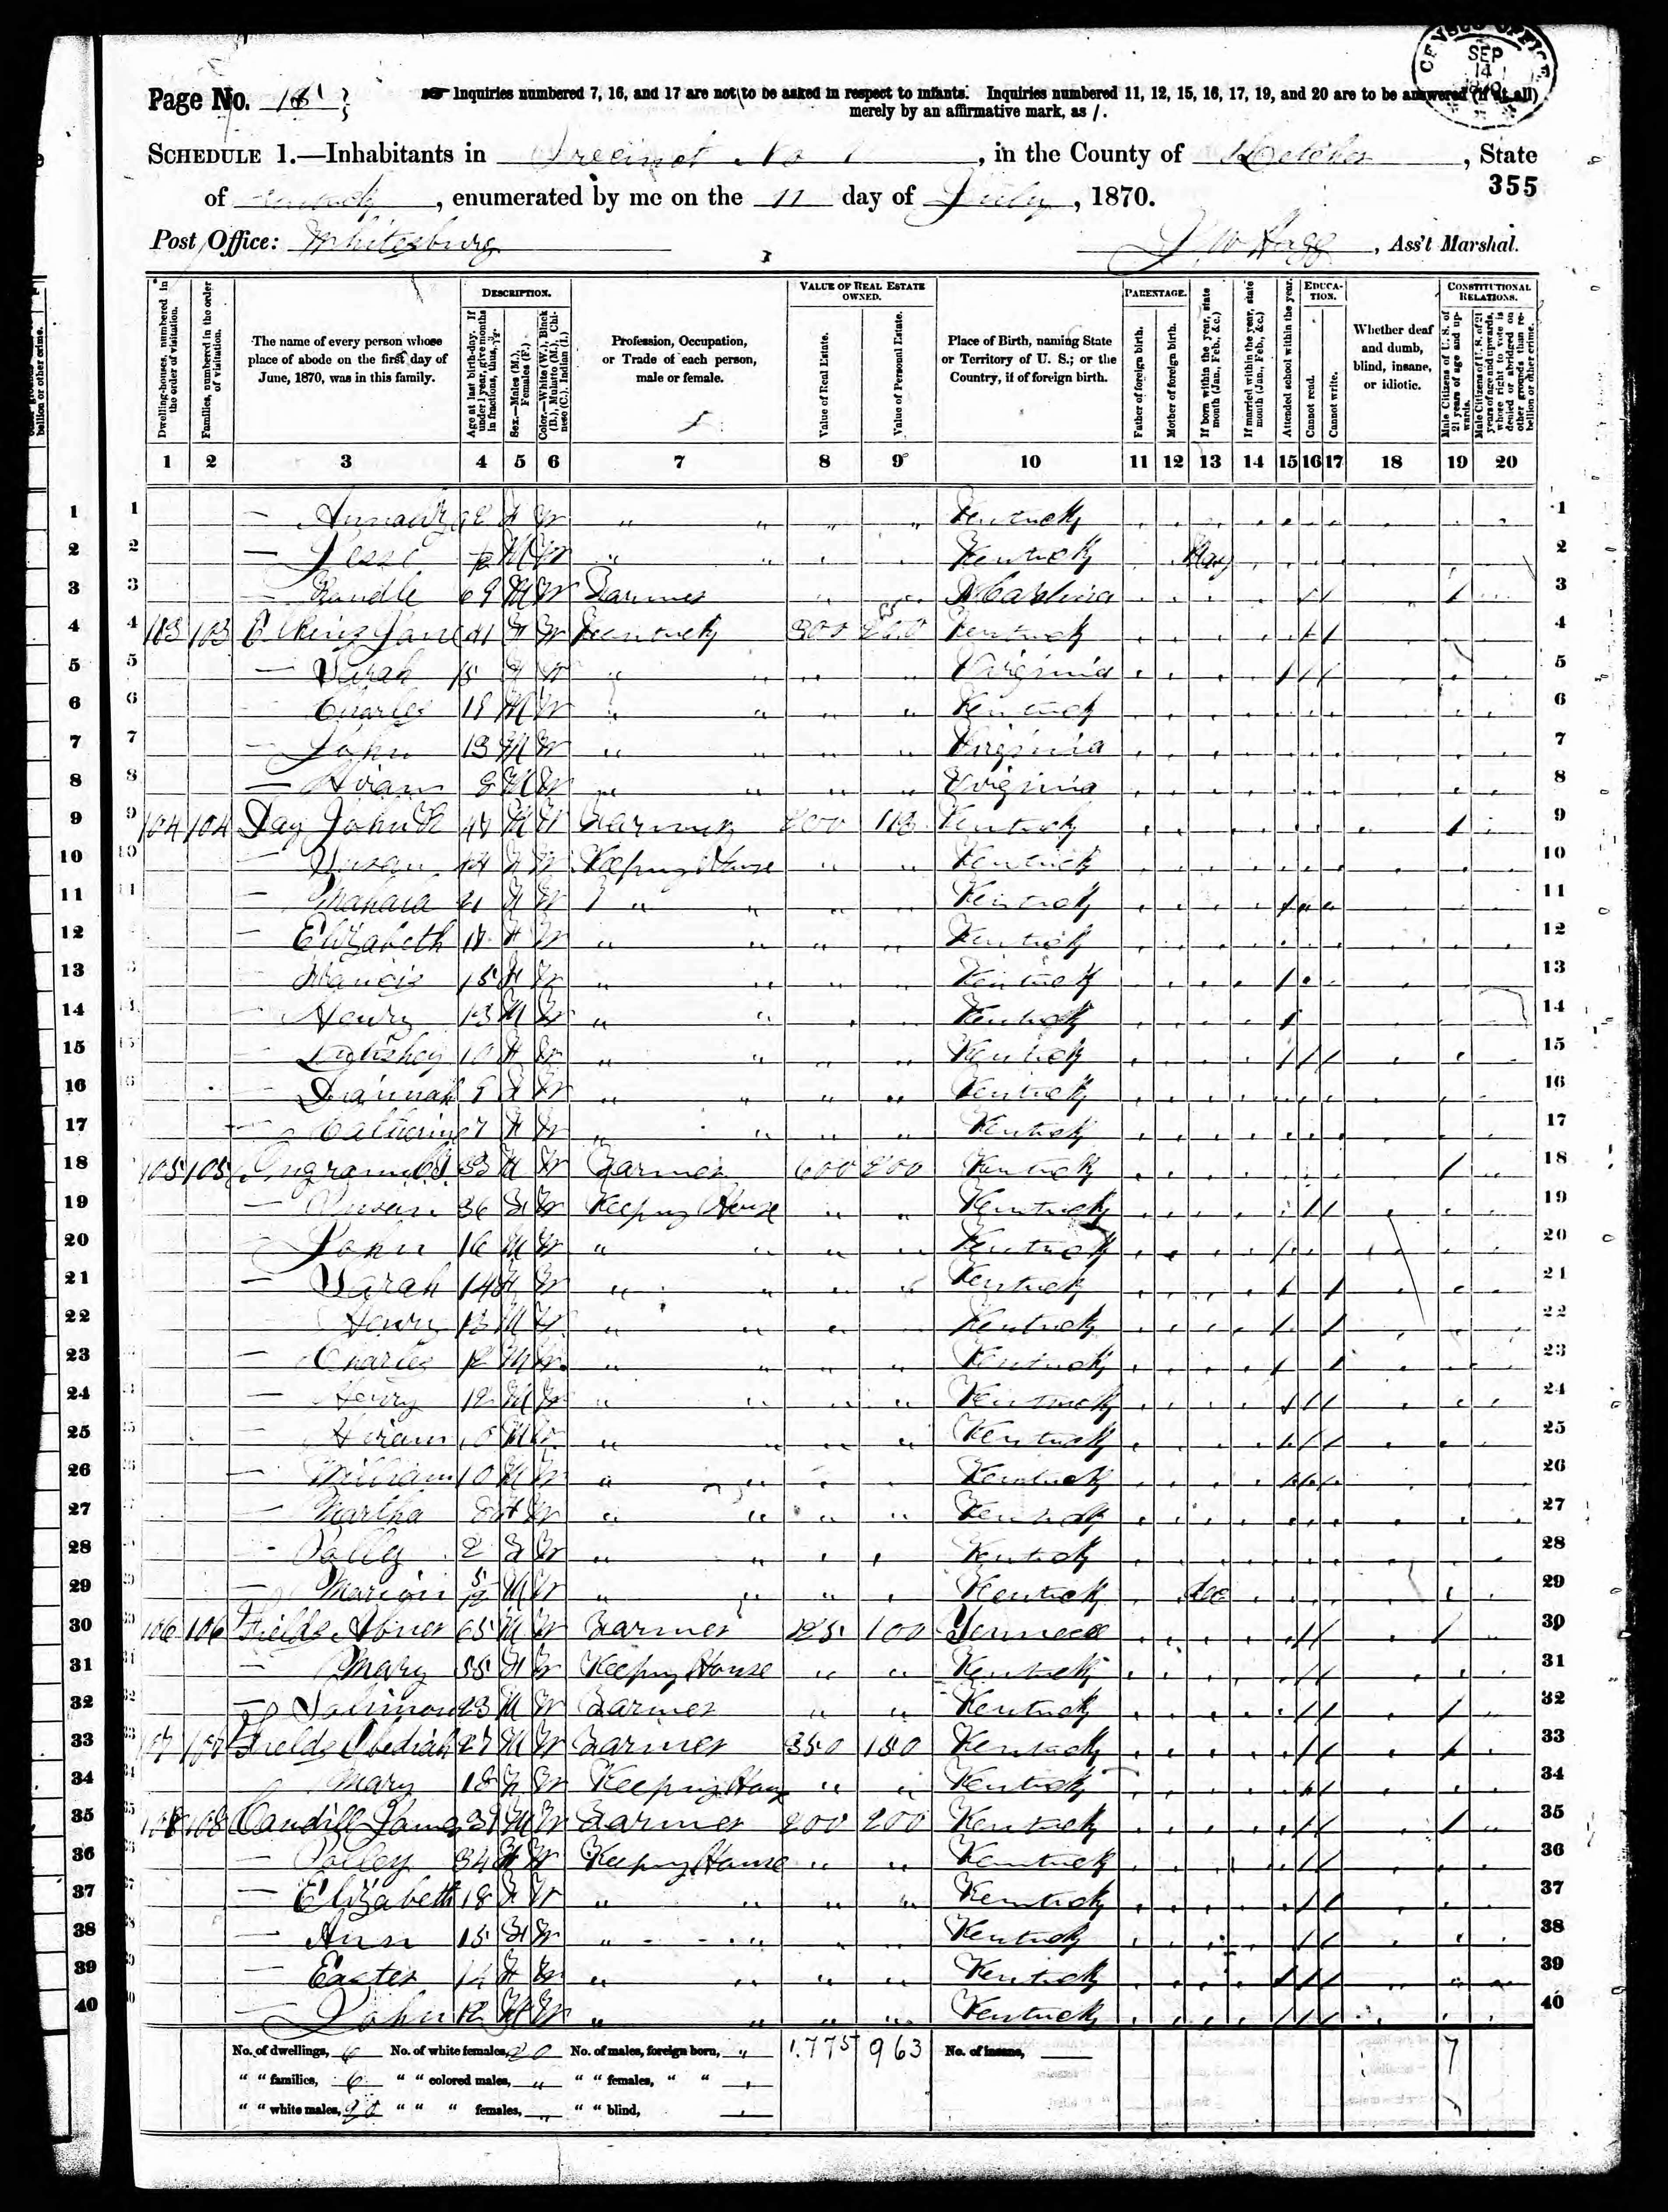 CENSUS OFFICE SEP 14 1870
Page No. 15
☞ Inquiries numbered 7, 16, and 17 are not to be asked in respect to infants. Inquiries numbered 11, 12, 15, 16, 17, 19, and 20 are to be answered (if at all)
merely by an affirmative mark, as /.
SCHEDULE 1.—Inhabitants in Precinct No 1, in the County of Letcher, State
of Kentucky, enumerated by me on the 11 day of July, 1870.
355
Post Office: Whitesburg
, Ass't Marshal.
Dwelling-houses, numbered in the order of visitation.
Families, numbered in the order of visitation.
The name of every person whose place of abode on the first day of June, 1870, was in this family.
DESCRIPTION.
Age at last birth-day. If under 1 year, give months in fractions, thus, 3/12.
Sex.—Males (M.), Females (F.)
Color.—White (W.), Black (B.), Mulatto (M.), Chinese (C.), Indian (I.)
Profession, Occupation, or Trade of each person, male or female.
VALUE OF REAL ESTATE OWNED.
Value of Real Estate.
Value of Personal Estate.
Place of Birth, naming State or Territory of U. S.; or the Country, if of foreign birth.
PARENTAGE.
Father of foreign birth.
Mother of foreign birth.
If born within the year, state month (Jan., Feb., &c.)
If married within the year, state month (Jan., Feb., &c.)
Attended school within the year.
EDUCATION.
Cannot read.
Cannot write.
Whether deaf and dumb, blind, insane, or idiotic.
CONSTITUTIONAL RELATIONS.
Male Citizens of U. S. of 21 years of age and upwards.
Male Citizens of U. S. of 21 years of age and upwards, whose right to vote is denied or abridged on other grounds than rebellion or other crime.
1 2 3 4 5 6 7 8 9 10 11 12 13 14 15 16 17 18 19 20
1 F W Kentucky 1
2 — Jesse M W Kentucky May 2
3 — Randle 69 M W Farmer N Carolina / / / 3
4 103 103 Elkins Jane 41 F W Kentucky 300 Kentucky / / 4
5 — Sarah 15 F W Virginia / / / 5
6 — Charles 18 M W Kentucky 6
7 — John 13 M W Virginia 7
8 — Hiram M W Virginia 8
9 104 104 Day John M W Farmer 200 113 Kentucky / 9
10 — Susan 44 F W Keeping House Kentucky 10
11 — Mahala 21 F W Kentucky / 11
12 — Elizabeth F W Kentucky 12
13 — Nancis 15 F W Kentucky / 13
14 — Henry 13 M W Kentucky / 14
15 — 10 F W Kentucky / / / 15
16 — F W Kentucky 16
17 — Catherine 7 F W Kentucky 17
18 105 105 Ingram M W Farmer 600 200 Kentucky / 18
19 — Susan 36 F W Keeping House Kentucky / / 19
20 — John 16 M W Kentucky / 20
21 — Sarah 14 F W Kentucky / / 21
22 — Henry 13 M W Kentucky / / 22
23 — Charles 12 M W Kentucky / / 23
24 — Henry 12 M W Kentucky / / / 24
25 — Hiram 10 M W Kentucky / / / 25
26 — William 10 M W Kentucky / / / 26
27 — Martha 8 F W Kentucky 27
28 — Polly 2 F W Kentucky 28
29 — Marion 5/12 M W Kentucky Dec 29
30 106 106 Fields Abner 65 M W Farmer 125 100 Tennece / / / 30
31 — Mary 55 F W Keeping House Kentucky / / 31
32 — 23 M W Farmer Kentucky / / / 32
33 107 107 Fields Obediah 27 M W Farmer 350 150 Kentucky / / / 33
34 Mary 18 F W Keeping House Kentucky / / 34
35 108 108 Caudill James M W Farmer 200 200 Kentucky / / / 35
36 — Polley 34 F W Keeping House Kentucky / / 36
37 — Elizabeth 18 F W Kentucky / / 37
38 — Ann 15 F W Kentucky / / 38
39 — Easter 14 F W Kentucky / / / 39
40 — John 12 M W Kentucky / / / 40
No. of dwellings, 6 No. of white females, 20 No. of males, foreign born, " 1.775 963 No. of insane, 7
" " families, 6 " " colored males, " " " females, " "
" " white males, 20 " " " females, " " " blind,